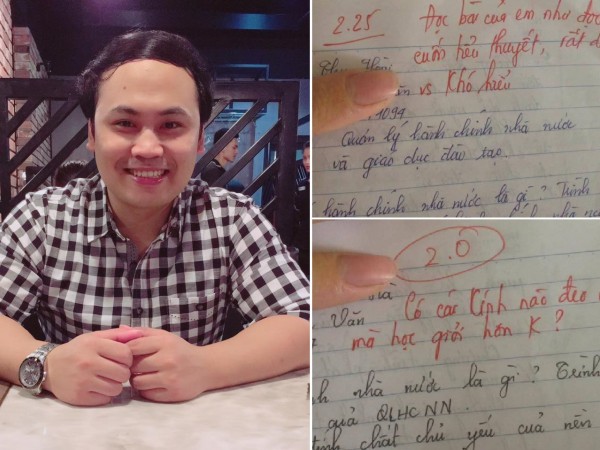 2.25
Đọc bài của em như đọc
cuốn tiểu thuyết, rất d
vs Khó hiểu
1094
Quản lý hành chính nhà nước
và giáo dục đào tạo.
hành chính nhà nước là gì? Trình
2.0
Có cái kính nào đeo
Văn
mà học giỏi hơn K?
nh nhà nước là gì? Trình
quả QLHCNN.
tính chất chủ yếu của nền